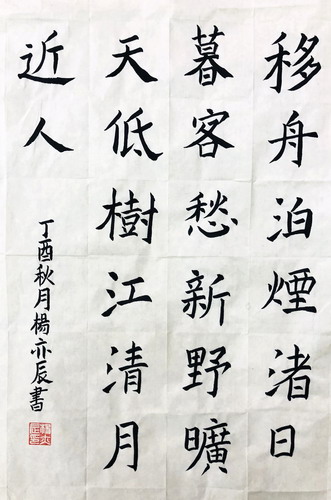 移舟泊煙渚日
暮客愁新野曠
天低樹江清月
近人
丁酉秋月楊亦辰書